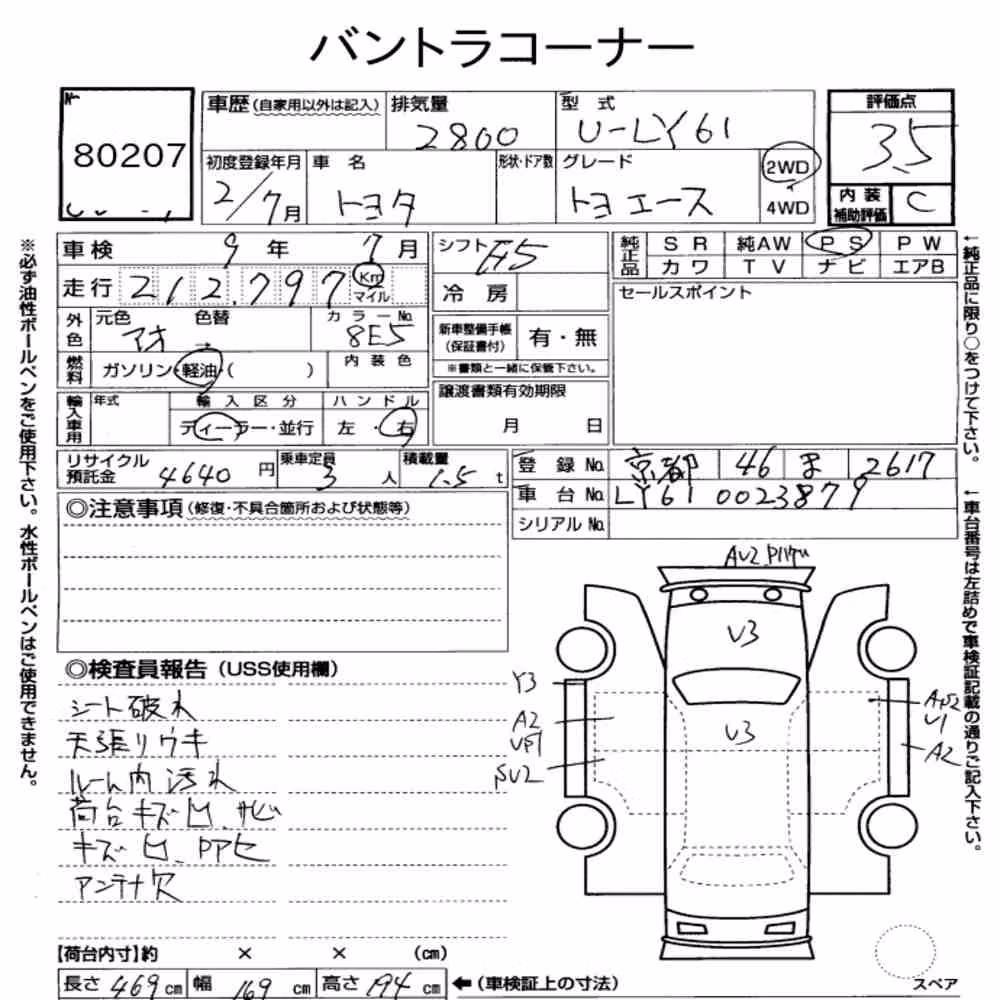 バントラコーナー
№
80207
車歴(自家用以外は記入)
排気量
2800
型式
U-LY61
評価点
3.5
初度登録年月
2/7月
車名
トヨタ
形状・ドア数
グレード
トヨエース
2WD
4WD
内装
補助評価
C
車検 9年 7月
シフト F5
純正品
SR 純AW PS PW
カワ TV ナビ エアB
走行 212,797 Km マイル
冷房
セールスポイント
外色
元色 色替
アオ →
カラーNo.
8E5
新車整備手帳
(保証書付)
有・無
※書類と一緒に保管下さい。
燃料
ガソリン・軽油・( )
内装色
輸入車用
年式
輸入区分
ディーラー・並行
ハンドル
左・右
譲渡書類有効期限
月 日
リサイクル
預託金 4640円
乗車定員
3人
積載量
1.5t
登録No. 京都 46 ま 2617
車台No. LY61 0023879
シリアルNo.
◎注意事項(修復・不具合箇所および状態等)
◎検査員報告(USS使用欄)
シート破れ
天張りウキ
ルーム内汚れ
荷台キズ凹、サビ
キズ凹、Pアセ
アンテナ欠
AU2
V3
V3
Y3
A2
UP1
SV2
AP2
V1
A2
【荷台内寸】約 × × (cm)
長さ 469cm 幅 169cm 高さ 194cm
←(車検証上の寸法)
スペア
※必ず油性ボールペンをご使用下さい。水性ボールペンはご使用できません。
←純正品に限り○をつけて下さい。
←車台番号は左詰めで車検証記載の通りご記入下さい。